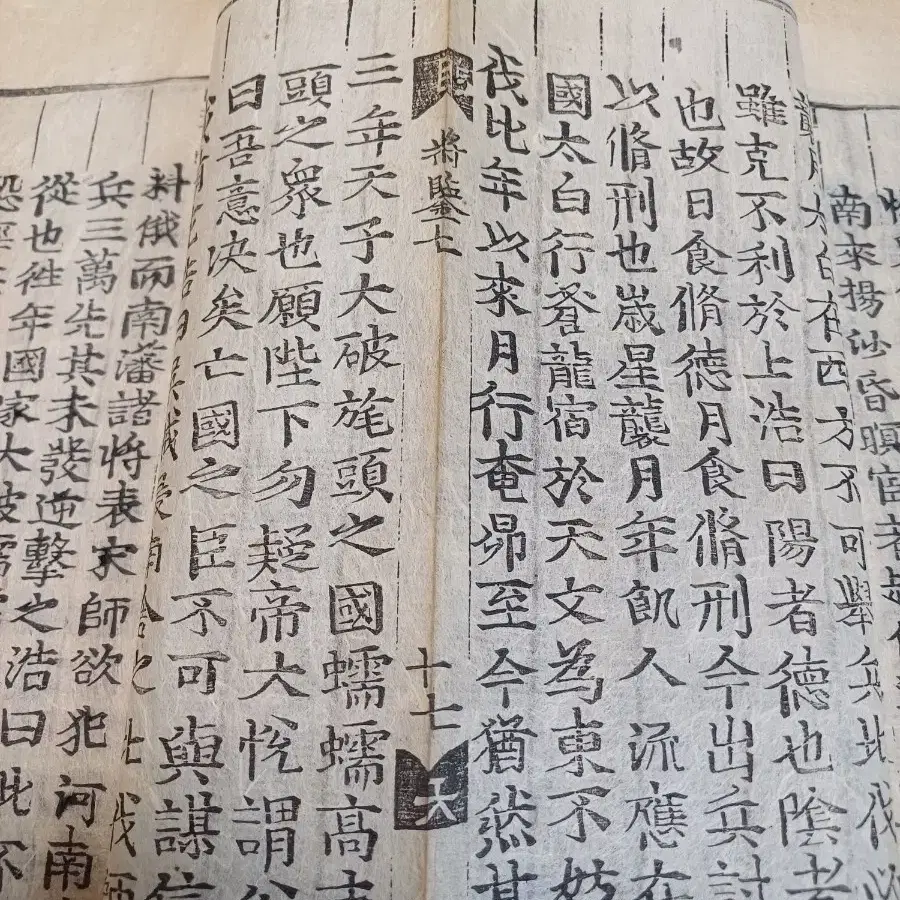 南來揚沙昏暝宦者
太白在西方不可舉兵北伐必
雖克不利於上浩曰陽者德也陰者
也故日食脩德月食脩刑今出兵討
以脩刑也歲星襲月年飢人流應在
國太白行蒼龍宿於天文為東不妨
伐比年以來月行奄昴至今猶然其
將鑑七
十七
三年天子大破旄頭之國蠕蠕高
頭之衆也願陛下勿疑帝大悅謂公
曰吾意決矣亡國之臣不可與謀信
北伐師
料俄而南藩諸將表宋師欲犯河南
兵三萬先其未發逆擊之浩曰此不
從也往年國家大破蠕
恐